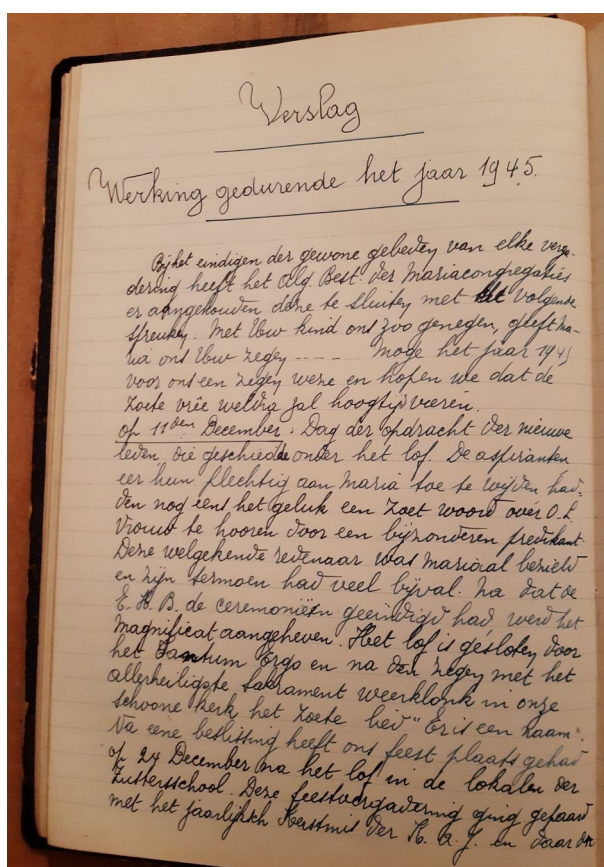 Verslag
Werking gedurende het jaar 1945.
Bij het eindigen der gewone gebeden van elke verga-
dering heeft het Alg Best. der Mariacongregaties
er aangehouden deze te sluiten met de volgende
spreuken: Met Uw kind ons zoo genegen, geeft Ma-
ria ons Uw zegen ---- Moge het jaar 1945
voor ons een zegen weze en hopen we dat de
zoete vrêe weldra zal hoogtijdvieren.
op 11den December: Dag der opdracht der nieuwe
leden, die geschiedde onder het lof. De aspiranten
eer hun plechtig aan Maria toe te wijden had-
den nog eens het geluk een zoet woord over O. L.
Vrouw te hooren door een bijzonderen predikant.
Deze welgekende redenaar was Mariaal bezield
en zijn sermoen had veel bijval. Na dat de
E. H. B. de ceremoniën geeindigd had werd het
Magnificat aangeheven. Het lof is gesloten door
het Tantum Ergo en na den zegen met het
allerheiligste Sakrament weerklonk in onze
schoone kerk het zoete lied "Er is een naam".
Na eene beslissing heeft ons feest plaats gehad
op 24 December na het lof in de lokalen der
Zusterschool. Deze feestvergadering ging gepaard
met het jaarlijksch Kerstmis der K. A. J. en daar